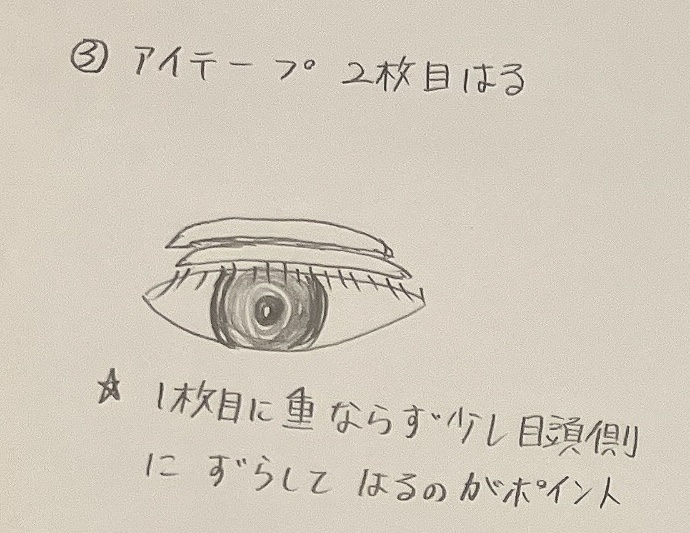 ③ アイテープ 2枚目はる
☆ 1枚目に重ならず少し目頭側
に ずらして はるのがポイント